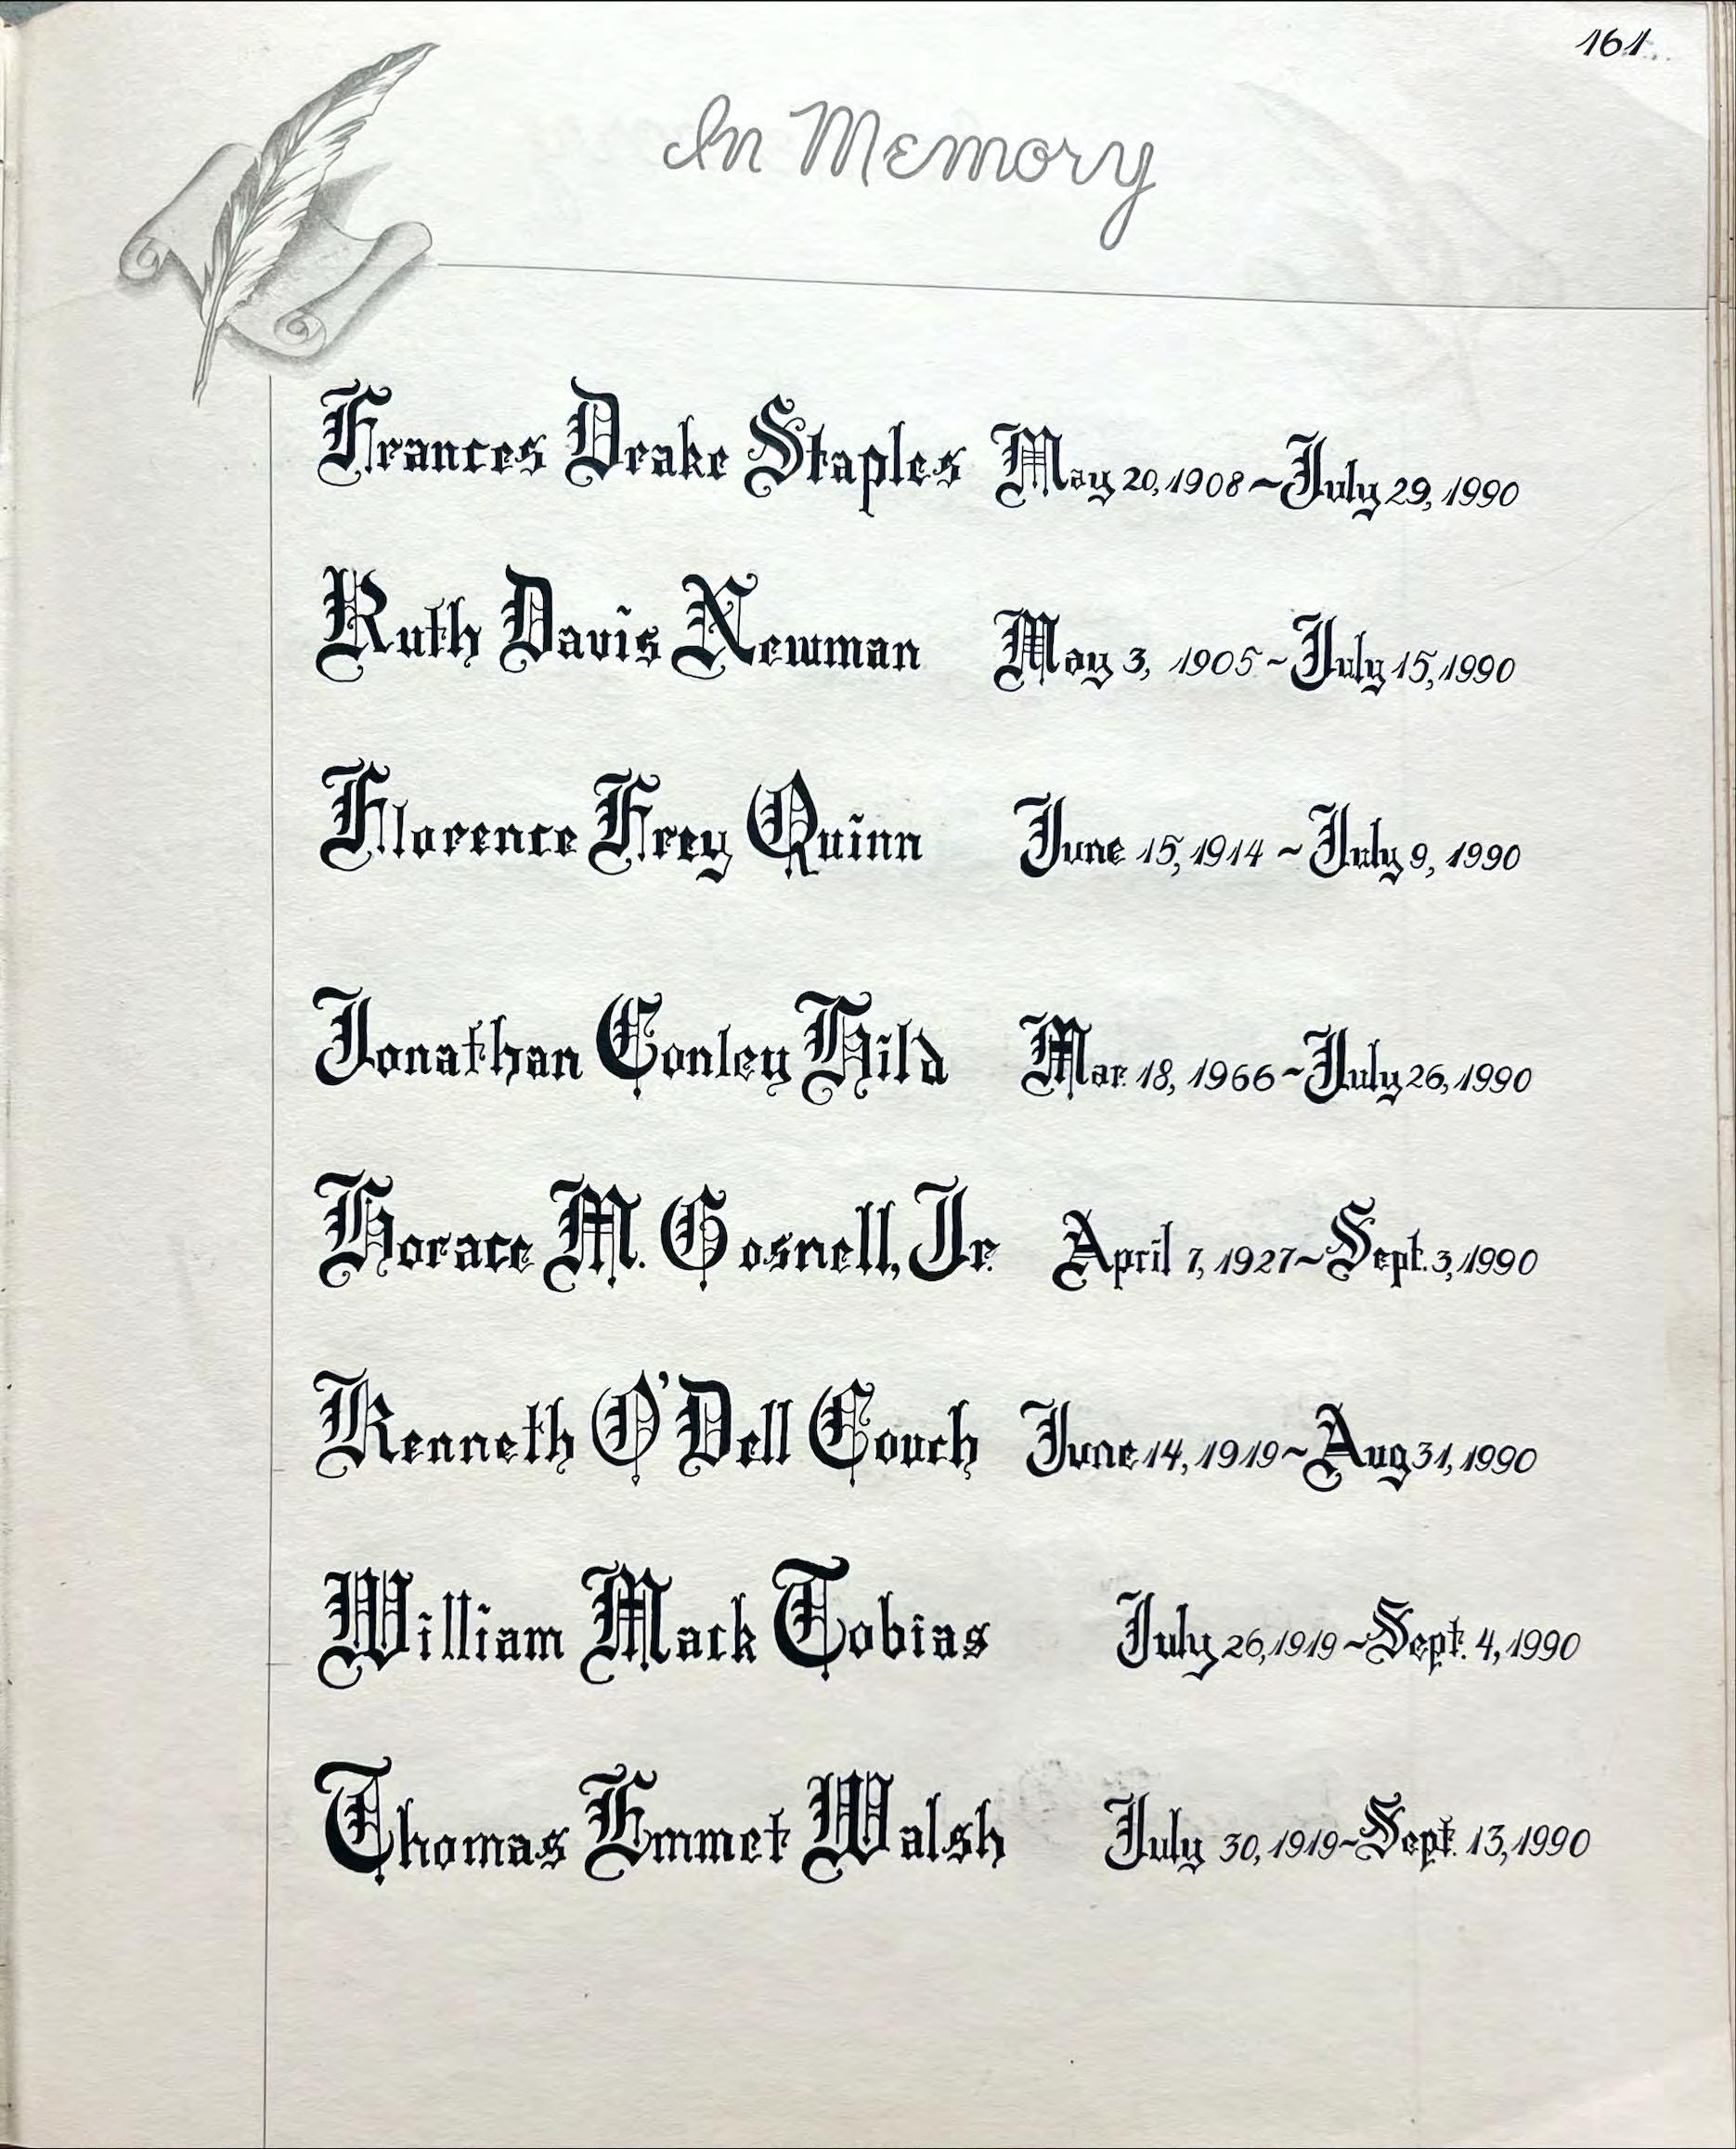 161
In Memory
Frances Drake Staples May 20, 1908 ~ July 29, 1990
Ruth Davis Newman May 3, 1905 ~ July 15, 1990
Florence Frey Quinn June 15, 1914 ~ July 9, 1990
Jonathan Conley Hild Mar. 18, 1966 ~ July 26, 1990
Horace M. Gosnell, Jr. April 7, 1927 ~ Sept. 3, 1990
Kenneth O'Dell Couch June 14, 1919 ~ Aug 31, 1990
William Mack Tobias July 26, 1919 ~ Sept. 4, 1990
Thomas Emmet Walsh July 30, 1919 ~ Sept. 13, 1990